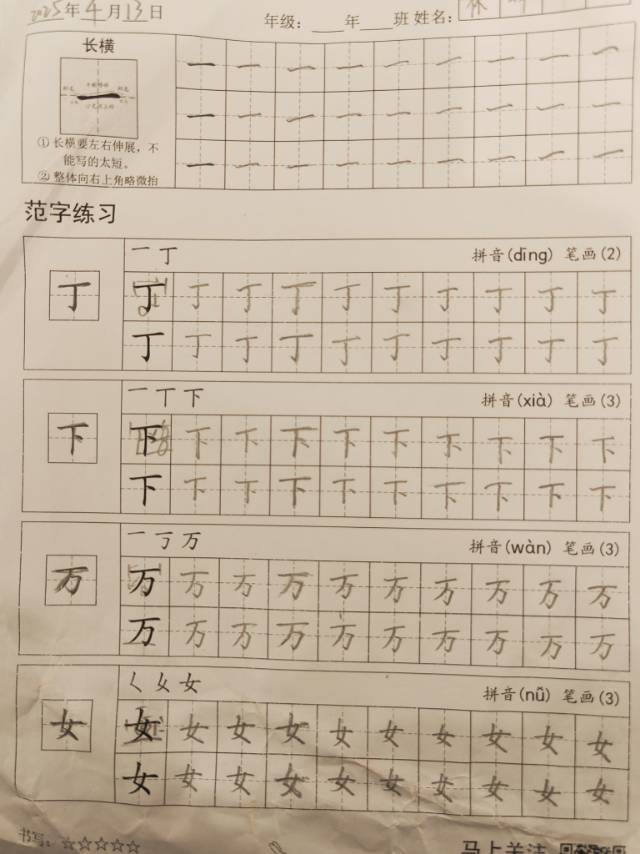 2025年4月13日
年级：____年____班 姓名：
长横
① 长横要左右伸展，不
能写的太短。
② 整体向右上角略微抬
一 一 一 一 一 一 一 一 一
一 一 一 一 一 一 一 一 一
一 一 一 一 一 一 一 一 一
范字练习
一 丁 拼音(dīng) 笔画(2)
丁 丁 丁 丁 丁 丁 丁 丁 丁 丁 丁
丁 丁 丁 丁 丁 丁 丁 丁 丁 丁
一 丅 下 拼音(xià) 笔画(3)
下 下 下 下 下 下 下 下 下 下 下
下 下 下 下 下 下 下 下 下 下
一 丂 万 拼音(wàn) 笔画(3)
万 万 万 万 万 万 万 万 万 万 万
万 万 万 万 万 万 万 万 万 万
𡿨 乂 女 拼音(nǚ) 笔画(3)
女 女 女 女 女 女 女 女 女 女 女
女 女 女 女 女 女 女 女 女 女
书写：☆☆☆☆☆
马上关注